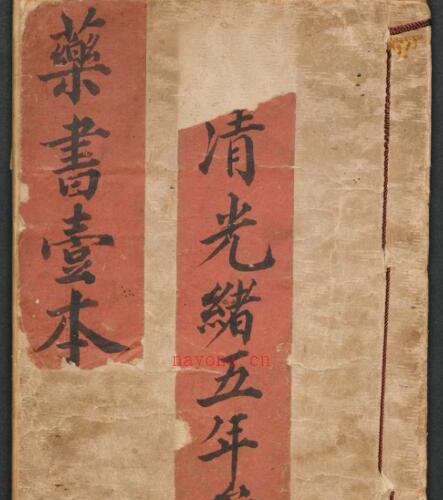 清光緒五年
藥書壹本
nayona.cn